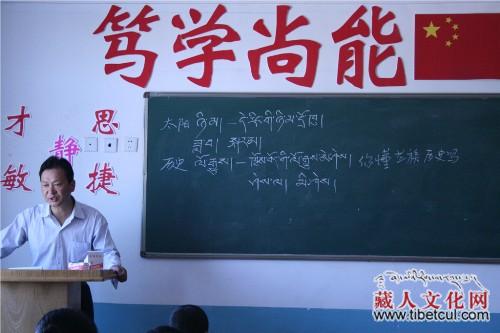 笃学尚能
才 思
静
敏 捷
太阳 ཉི་མ། — དེ་རིང་གི་ཉི་མ་
ཟླ་བ། སྐར་མ།
历史 ལོ་རྒྱུས། — བོད་ཀྱི་ལོ་རྒྱུས་ཤེས། 你懂藏族历史吗
མི་ཤེས།
藏人文化网
www.tibetcul.com